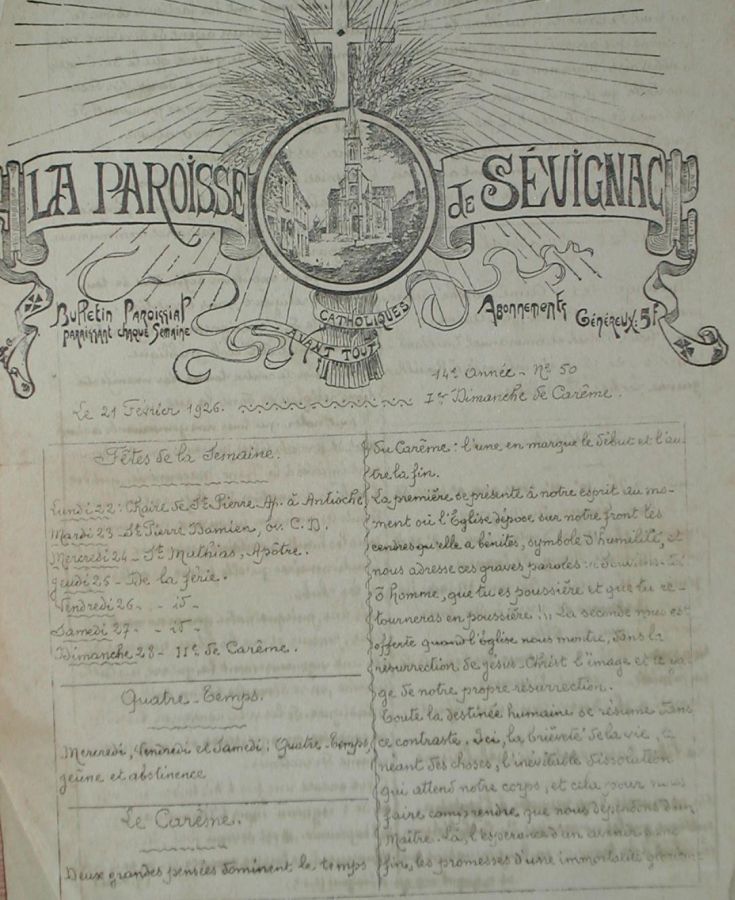 LA PAROISSE de SÉVIGNAC
Bulletin Paroissial
paraissant chaque Semaine
CATHOLIQUES
AVANT TOUT
Abonnements
Généreux: 5f
14e Année - No 50
Le 21 Février 1926.
Ier Dimanche de Carême.
Fêtes de la Semaine.
Lundi 22: Chaire de St Pierre Ap. à Antioche
Mardi 23 - St Pierre Damien, év. C. D.
Mercredi 24 - St Mathias, Apôtre.
Jeudi 25 - De la férie.
Vendredi 26 - - id -
Samedi 27 - - id -
Dimanche 28 - IIe de Carême.
Quatre-Temps.
Mercredi, Vendredi et Samedi: Quatre-Temps,
jeûne et abstinence
Le Carême.
Deux grandes pensées dominent le temps
du Carême: l'une en marque le début et l'au-
tre la fin.
La première se présente à notre esprit au mo-
ment où l'Église dépose sur notre front les
cendres qu'elle a bénites, symbole d'humilité, et
nous adresse ces graves paroles:
ô homme, que tu es poussière et que tu re-
tourneras en poussière!,, La seconde nous est
offerte quand l'église nous montre, dans la
résurrection de Jésus-Christ l'image et le ga-
ge de notre propre résurrection.
Toute la destinée humaine se résume dans
ce contraste. Ici, la brièveté de la vie, le
néant des choses, l'inévitable dissolution
qui attend notre corps, et cela pour nous
faire comprendre que nous dépendons d'un
Maître. Là, l'espérance d'un avenir sans
fin, les promesses d'une immortalité glorieuse